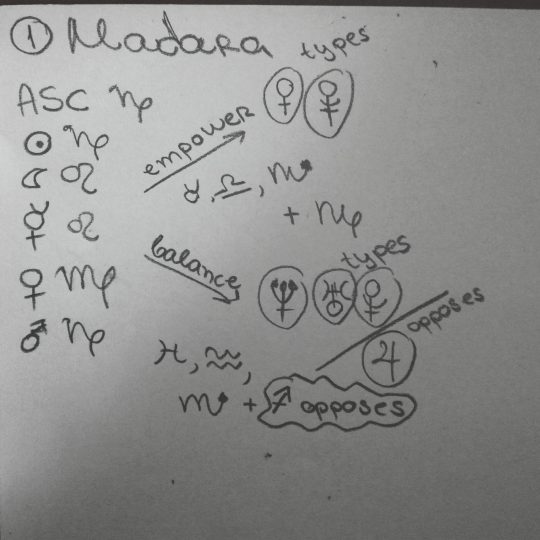 ① Madara
types
ASC ♑
♀ ⯓
☉ ♑
empower
☾ ♌
♉, ♎, ♏
+ ♑
☿ ♌
balance
types
♀ ♍
♆ ♅ ⯓
opposes
♂ ♑
♃
♓, ♒,
♏ + ♐ opposes